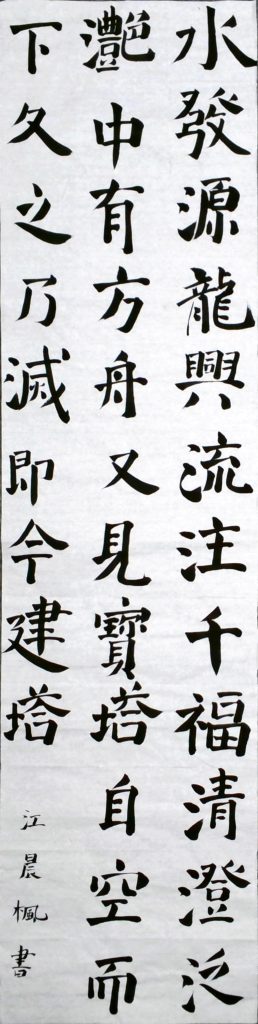 水發源龍興流注千福清澄泛
灔中有方舟又見寶塔自空而
下久之乃滅即今建塔
江晨楓書